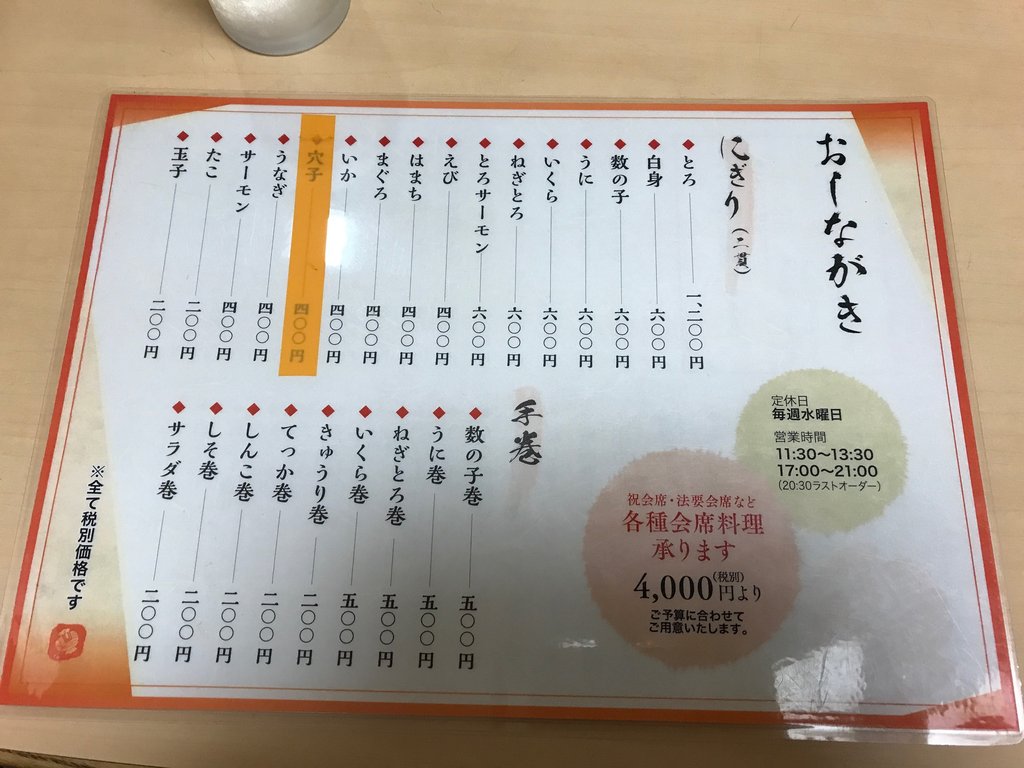 おしながき
にぎり（二貫）
とろ 一、二〇〇円
白身 六〇〇円
数の子 六〇〇円
うに 六〇〇円
いくら 六〇〇円
ねぎとろ 六〇〇円
とろサーモン 六〇〇円
えび 四〇〇円
はまち 四〇〇円
まぐろ 四〇〇円
いか 四〇〇円
穴子 四〇〇円
うなぎ 四〇〇円
サーモン 四〇〇円
たこ 二〇〇円
玉子 二〇〇円
手巻
数の子巻 五〇〇円
うに巻 五〇〇円
ねぎとろ巻 五〇〇円
いくら巻 五〇〇円
きゅうり巻 二〇〇円
てっか巻 二〇〇円
しんこ巻 二〇〇円
しそ巻 二〇〇円
サラダ巻 二〇〇円
※全て税別価格です
定休日
毎週水曜日
営業時間
11:30〜13:30
17:00〜21:00
(20:30ラストオーダー)
祝会席・法要会席など
各種会席料理
承ります
4,000円(税別)より
ご予算に合わせて
ご用意いたします。